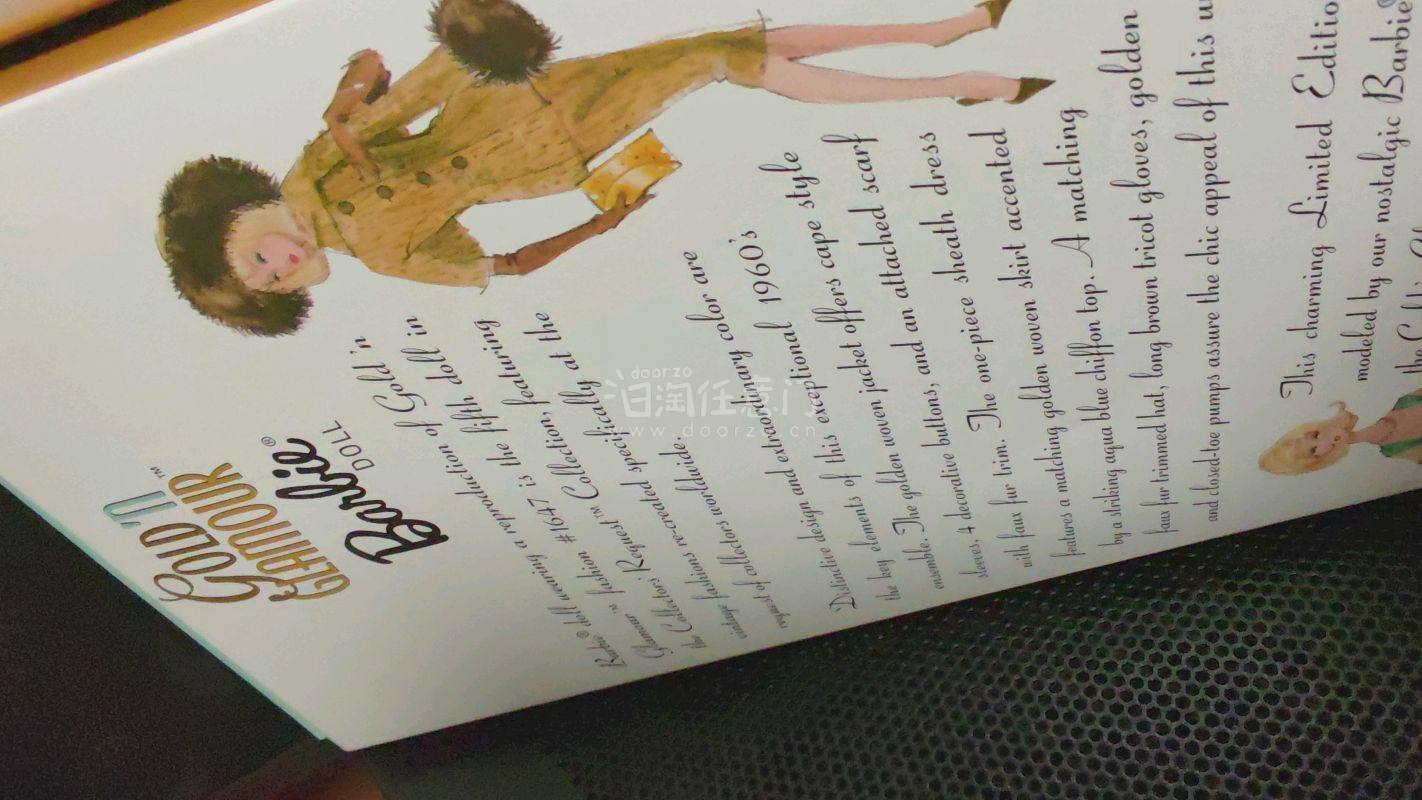 GOLD 'N
GLAMOUR™
Barbie®
DOLL
Barbie® doll wearing a reproduction of Gold 'n
Glamour™ fashion #1647 is the fifth doll in
the Collectors' Request™ Collection, featuring
vintage fashions re-created specifically at the
request of collectors worldwide.
Distinctive design and extraordinary color are
the key elements of this exceptional 1960's
ensemble. The golden woven jacket offers cape style
sleeves, 4 decorative buttons, and an attached scarf
with faux fur trim. The one-piece sheath dress
features a matching golden woven skirt accented
by a striking aqua blue chiffon top. A matching
faux fur trimmed hat, long brown tricot gloves, golden
and closed-toe pumps assure the chic appeal of this
This charming Limited Editio
modeled by our nostalgic Barbie®
doorzo
日淘任意门
www.doorzo.cn